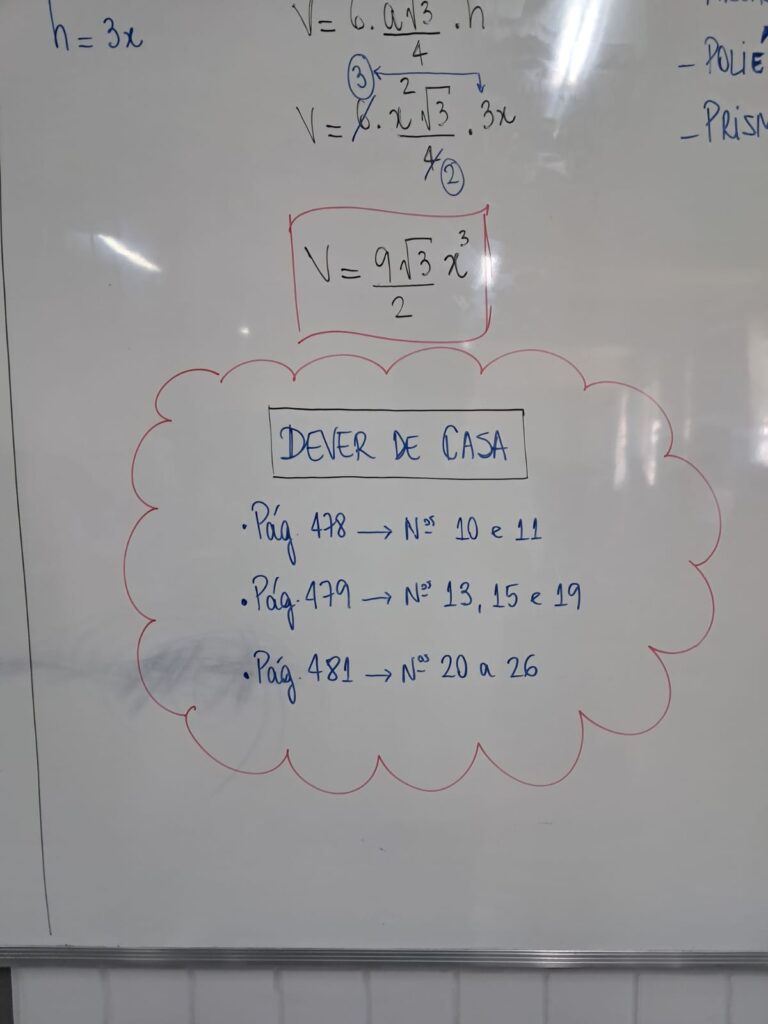 h = 3x
V = 6 . a√3/4 . h
V = 6 . x²√3/4 . 3x
3
2
V = 9√3/2 x³
- POLIE
- PRISM
DEVER DE CASA
• Pág. 478 → Nos 10 e 11
• Pág. 479 → Nos 13, 15 e 19
• Pág. 481 → Nos 20 a 26